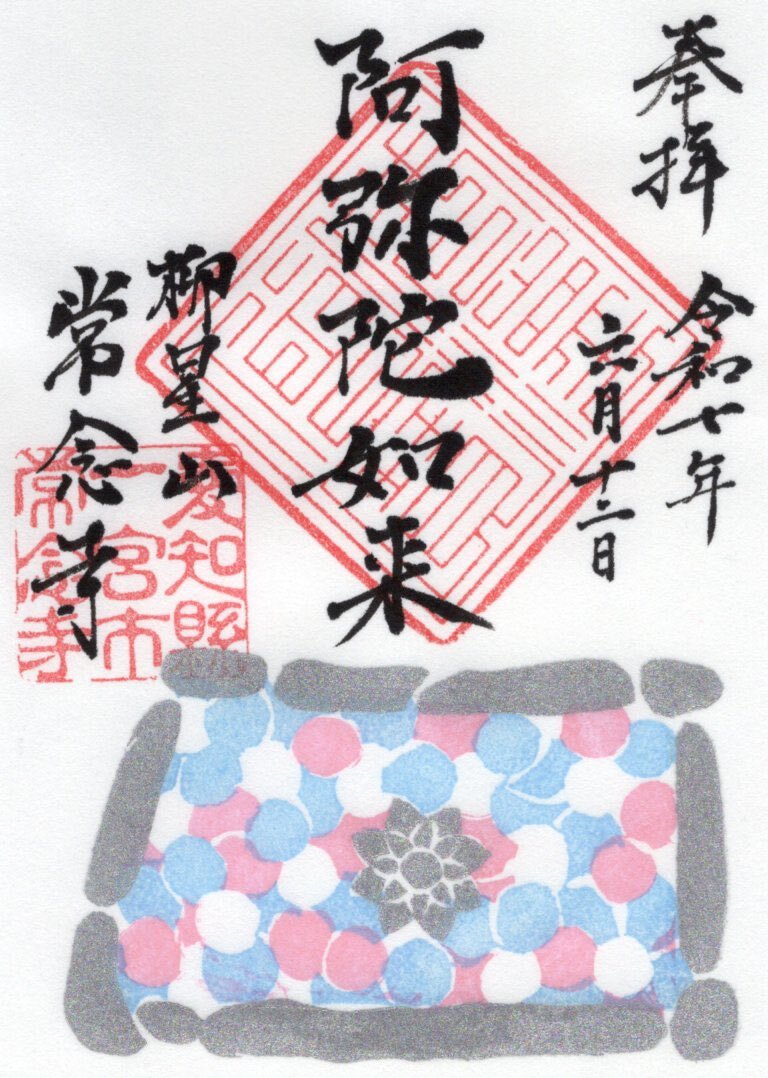 奉拝
令和七年
六月十二日
阿弥陀如来
柳星山
常念寺
愛知縣
一宮市
常念寺